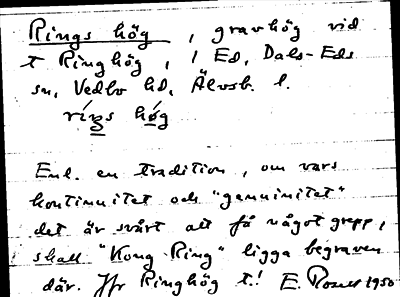 Rings hög, gravhög vid
t Ringhög, 1 Ed, Dals-Eds
sn, Vedbo hd, Älvsb. l.
ríŋs hǿg
Enl. en tradition, om vars
kontinuitet och "genuinitet"
det är svårt att få något grepp,
skall "Kong Ring" ligga begraven
där. Jfr Ringhög t.! E. 1950